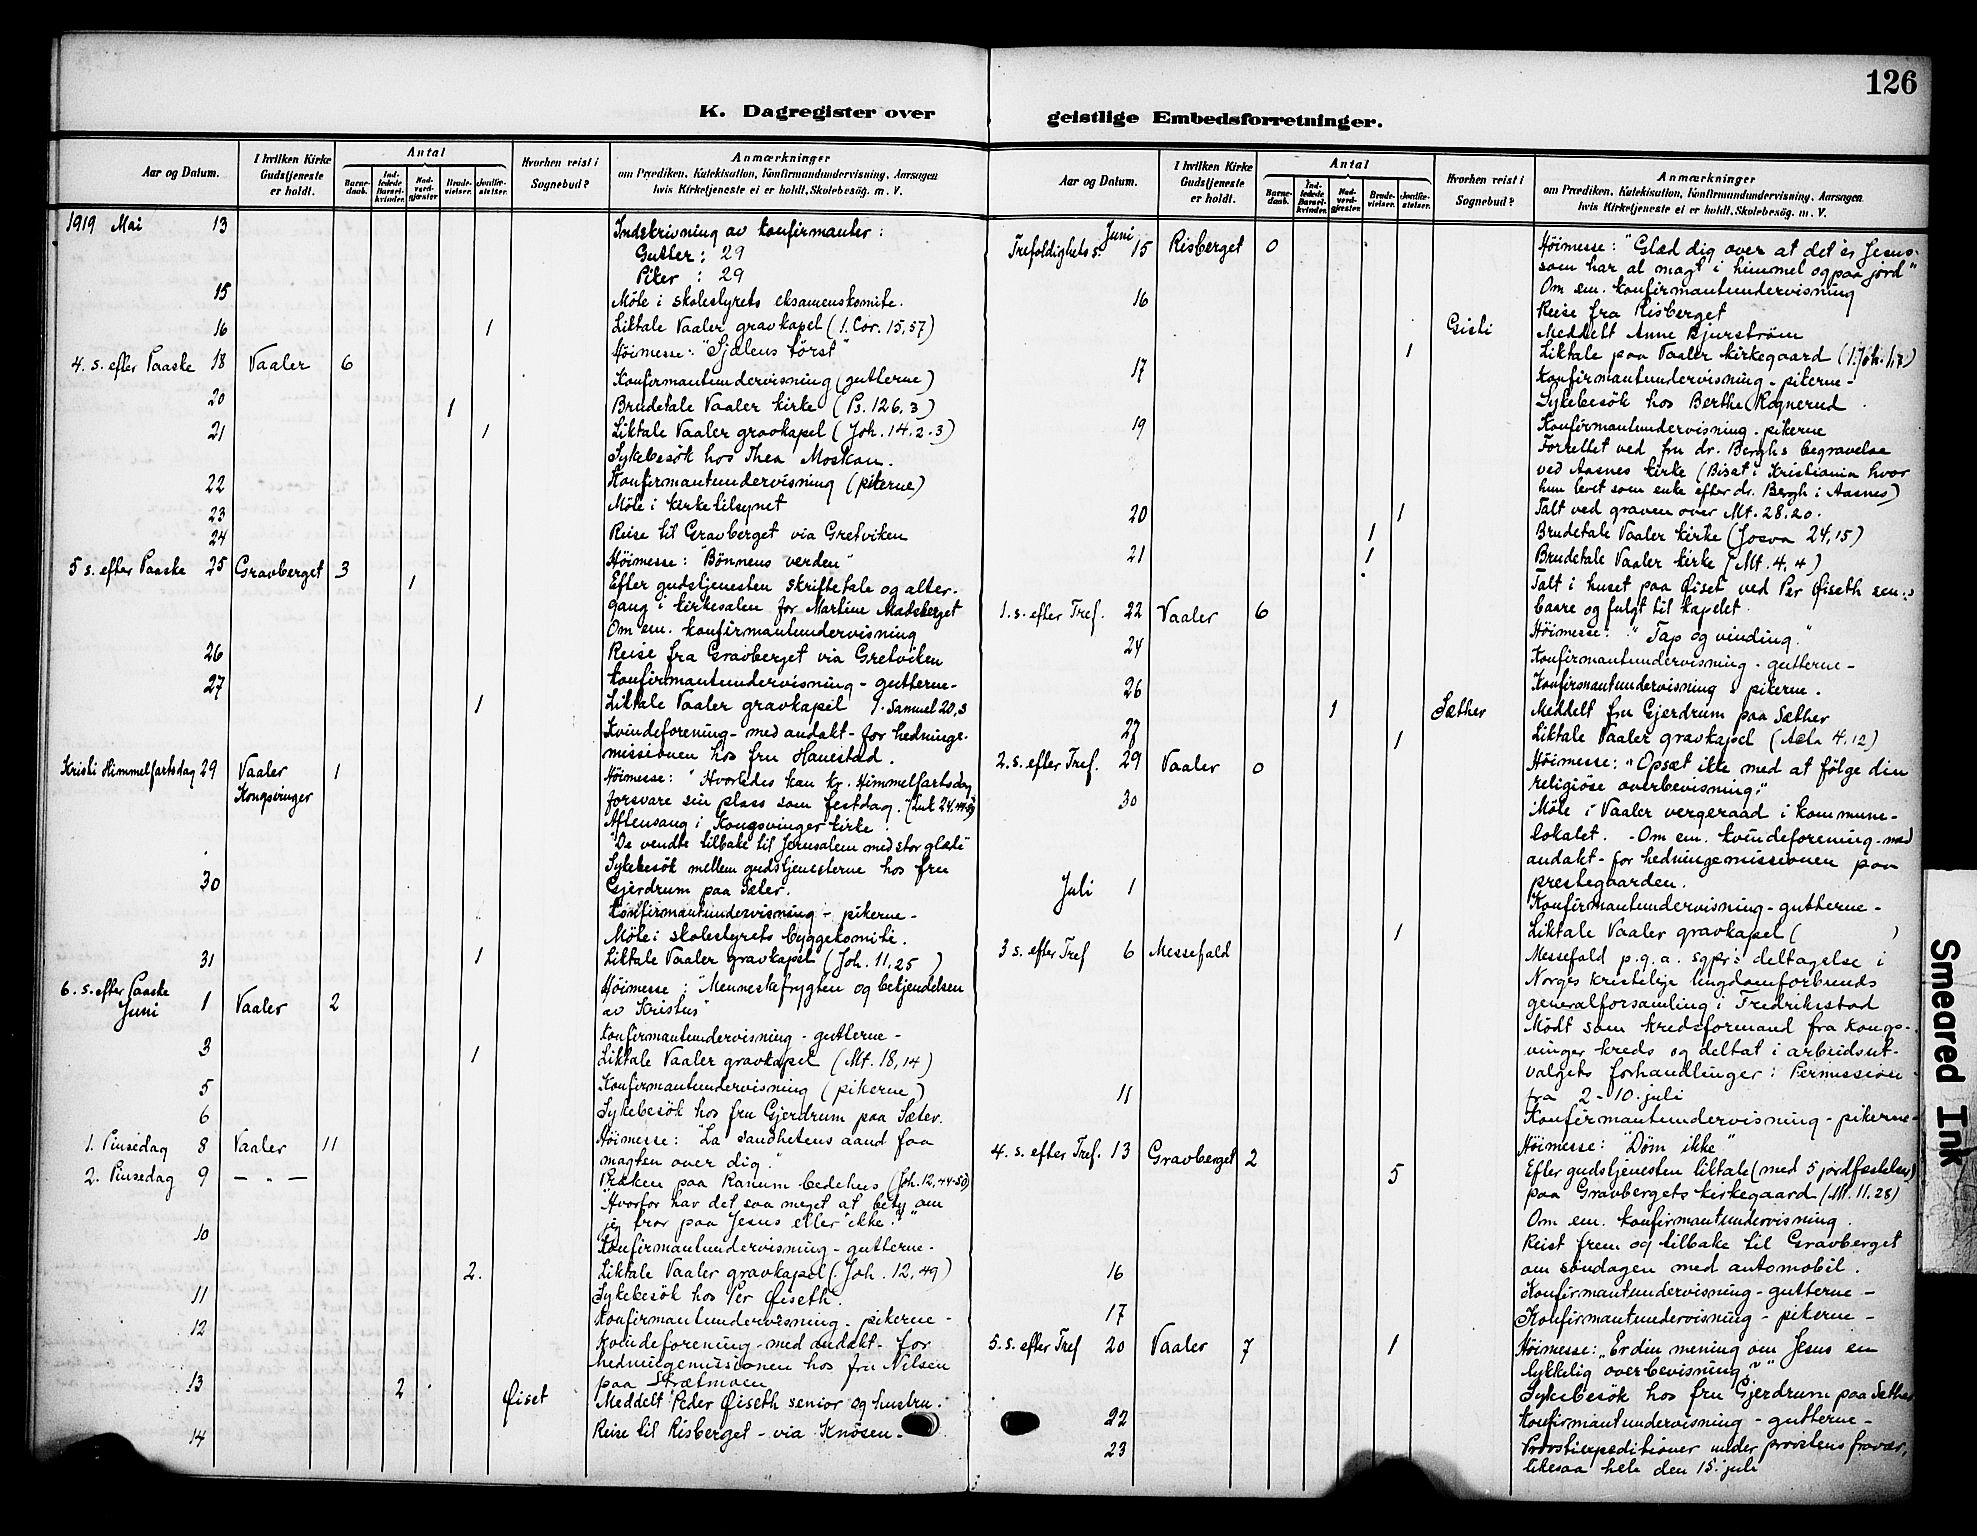 126
K. Dagregister over
geistlige Embedsforretninger.
Aar og Datum.
I hvilken Kirke Gudstjeneste er holdt.
Antal
Barnedaab.
Indledede Barselkvinder.
Nadverdgjæster
Brudevielser.
Jordfæstelser.
Hvorhen reist i Sognebud?
Anmærkninger
om Prædiken, Katekisation, Konfirmandundervisning, Aarsagen
hvis Kirketjeneste ei er holdt. Skolebesög. m. V.
1919 Mai 13 Indskrivning av konfirmanter:
Gutter: 29
Piker: 29
15 Möte i skolestyrets eksamenskomite.
16 1 Liktale Vaaler gravkapel (1. Cor. 15,57)
4. s. efter Paaske 18 Vaaler 6 Höimesse: "Sjælens törst"
Konfirmantundervisning (gutterne)
20 1 Brudetale Vaaler kirke (Ps. 126,3)
21 1 Liktale Vaaler gravkapel (Joh. 14.2-3)
Sykebesök hos Thea Moskau.
22 Konfirmantundervisning (pikerne)
23 Möte i kirketilsynet
24 Reise til Gravberget via Gretviken
5 s. efter Paaske 25 Gravberget 3 Höimesse: "Bönnens verden"
1 Efter gudstjenesten skriftetale og alter-
gang i kirkesalen for Martine Madsberget
Om em. konfirmantundervisning
26 Reise fra Gravberget via Gretviken
27 Konfirmantundervisning - gutterne-
1 Liktale Vaaler gravkapel 1. Samuel 20,3
Kvindeforening - med andakt - for hedninge-
missionen hos fru Hanestad.
Kristi Himmelfartsdag 29 Vaaler 1 Höimesse: "Hvorledes kan kr. Himmelfartsdag
Kongsvinger forsvare sin plass som festdag. (Luk 24.
Aftensang i Kongsvinger kirke.
"De vendte tilbake til Jerusalem med stor glæde"
Sykebesök mellem gudstjenesterne hos fru
30 Gjerdrum paa Sæter.
Konfirmantundervisning - pikerne -
Möte i skolestyrets byggekomite.
31 1 Liktale Vaaler gravkapel (Joh. 11.25 )
6. s. efter Paaske
Juni 1 Vaaler 2 Höimesse: "Menneskefrygten og bekjendelsen
av Kristus"
3 Konfirmantundervisning - gutterne -
1 Liktale Vaaler gravkapel (Mt. 18,14)
5 Konfirmantundervisning (pikerne)
6 Sykebesök hos fru Gjerdrum paa Sæter.
1. Pinsedag 8 Vaaler 11 Höimesse: "La sandhetens aand faa
magten over dig."
2. Pinsedag 9 - " - Præken paa Ranum bedehus (Joh. 12,44-50)
"Hvorfor har det saa meget at bety om
jeg tror paa Jesus eller ikke?"
10 Konfirmantundervisning - gutterne.
2. Liktale Vaaler gravkapel (Joh. 12,49)
11 Sykebesök hos Per Øiseth.
12 Konfirmantundervisning - pikerne -
Kvindeforening - med andakt - for
hedningemissionen hos fru Nilsen
paa Strætmoen
13 2 Øiset Meddelt Peder Øiseth senior og hustru.
14 Reise til Risberget - via Knösen -
Aar og Datum.
I hvilken Kirke Gudstjeneste er holdt.
Antal
Barnedaab.
Indledede Barselkvinder.
Nadverdgjæster.
Brudevielser.
Jordfæstelser.
Hvorhen reist i Sognebud?
Anmærkninger
om Prædiken, Katekisation, Konfirmandundervisning, Aarsagen
hvis Kirketjeneste ei er holdt. Skolebesög. m. V.
Juni
Trefoldighets s. 15 Risberget 0 Höimesse: "Glæd dig over at det er Jesus
som har al magt i himmel og paa jord"
Om em. konfirmantundervisning
16 Reise fra Risberget
Gisti Meddelt Anne Bjurström
1 Liktale paa Vaaler kirkegaard (1. Joh. 1,7)
17 Konfirmantundervisning - pikerne -
Sykebesök hos Berthe Rognerud.
19 Konfirmantundervisning - pikerne
Forrettet ved fru dr. Berghs begravelse
ved Aasnes kirke (Bisat i Kristiania hvor
hun levet som enke efter dr. Bergh i Aasnes)
20 1 Talt ved graven over Mt. 28.20.
1 Brudetale Vaaler kirke (Josva 24,15)
21 1 Brudetale Vaaler kirke (Mt. 4,4)
Talt i huset paa Øiset ved Per Øiseth sen:s
baare og fulgt til kapelet.
1. s. efter Tref. 22 Vaaler 6 Höimesse: "Tap og vinding."
24 Konfirmantundervisning - gutterne -
26 Konfirmantundervisning - pikerne.
1 Sæther Meddelt fru Gjerdrum paa Sæther
27 1 Liktale Vaaler gravkapel (Acta 4.12)
2. s. efter Tref. 29 Vaaler 0 Höimesse: "Opsæt ikke med at følge din
religiöse overbevisning."
30 Möte i Vaaler vergeraad i kommune-
lokalet. - Om em. kvindeforening - med
andakt - for hedningemissionen paa
prestegaarden.
Juli 1 Konfirmantundervisning - gutterne -
1 Liktale Vaaler gravkapel ( )
3 s. efter Tref 6 Messefald Messefald p.g.a. sgpr:s deltagelse i
Norges kristelige Ungdomforbunds
generalforsamling i Fredrikstad
Mödt som kredsformand fra Kongs-
vinger kreds og deltat i arbeidsut-
valgets forhandlinger: Permission
fra 2 - 10. juli
11 Konfirmantundervisning - pikerne -
4. s. efter Tref. 13 Gravberget 2 Höimesse: "Döm ikke"
5 Efter gudstjenesten liktale (med 5 jordfæstelser)
paa Gravbergets kirkegaard (Mt. 11.28)
Om em. konfirmantundervisning.
Reist frem og tilbake til Gravberget
om söndagen med automobil.
16 Konfirmantundervisning - gutterne -
17 Konfirmantundervisning - pikerne -
5. s. efter Tref 20 Vaaler 7 1 Höimesse: "Er din mening om Jesus en
lykkelig overbevisning?"
Sykebesök hos fru Gjerdrum paa Sæther
22 Konfirmantundervisning - gutterne -
23 Provstiexpeditioner under provstens fravær,
likesaa hele den 15. juli
Smeared Ink